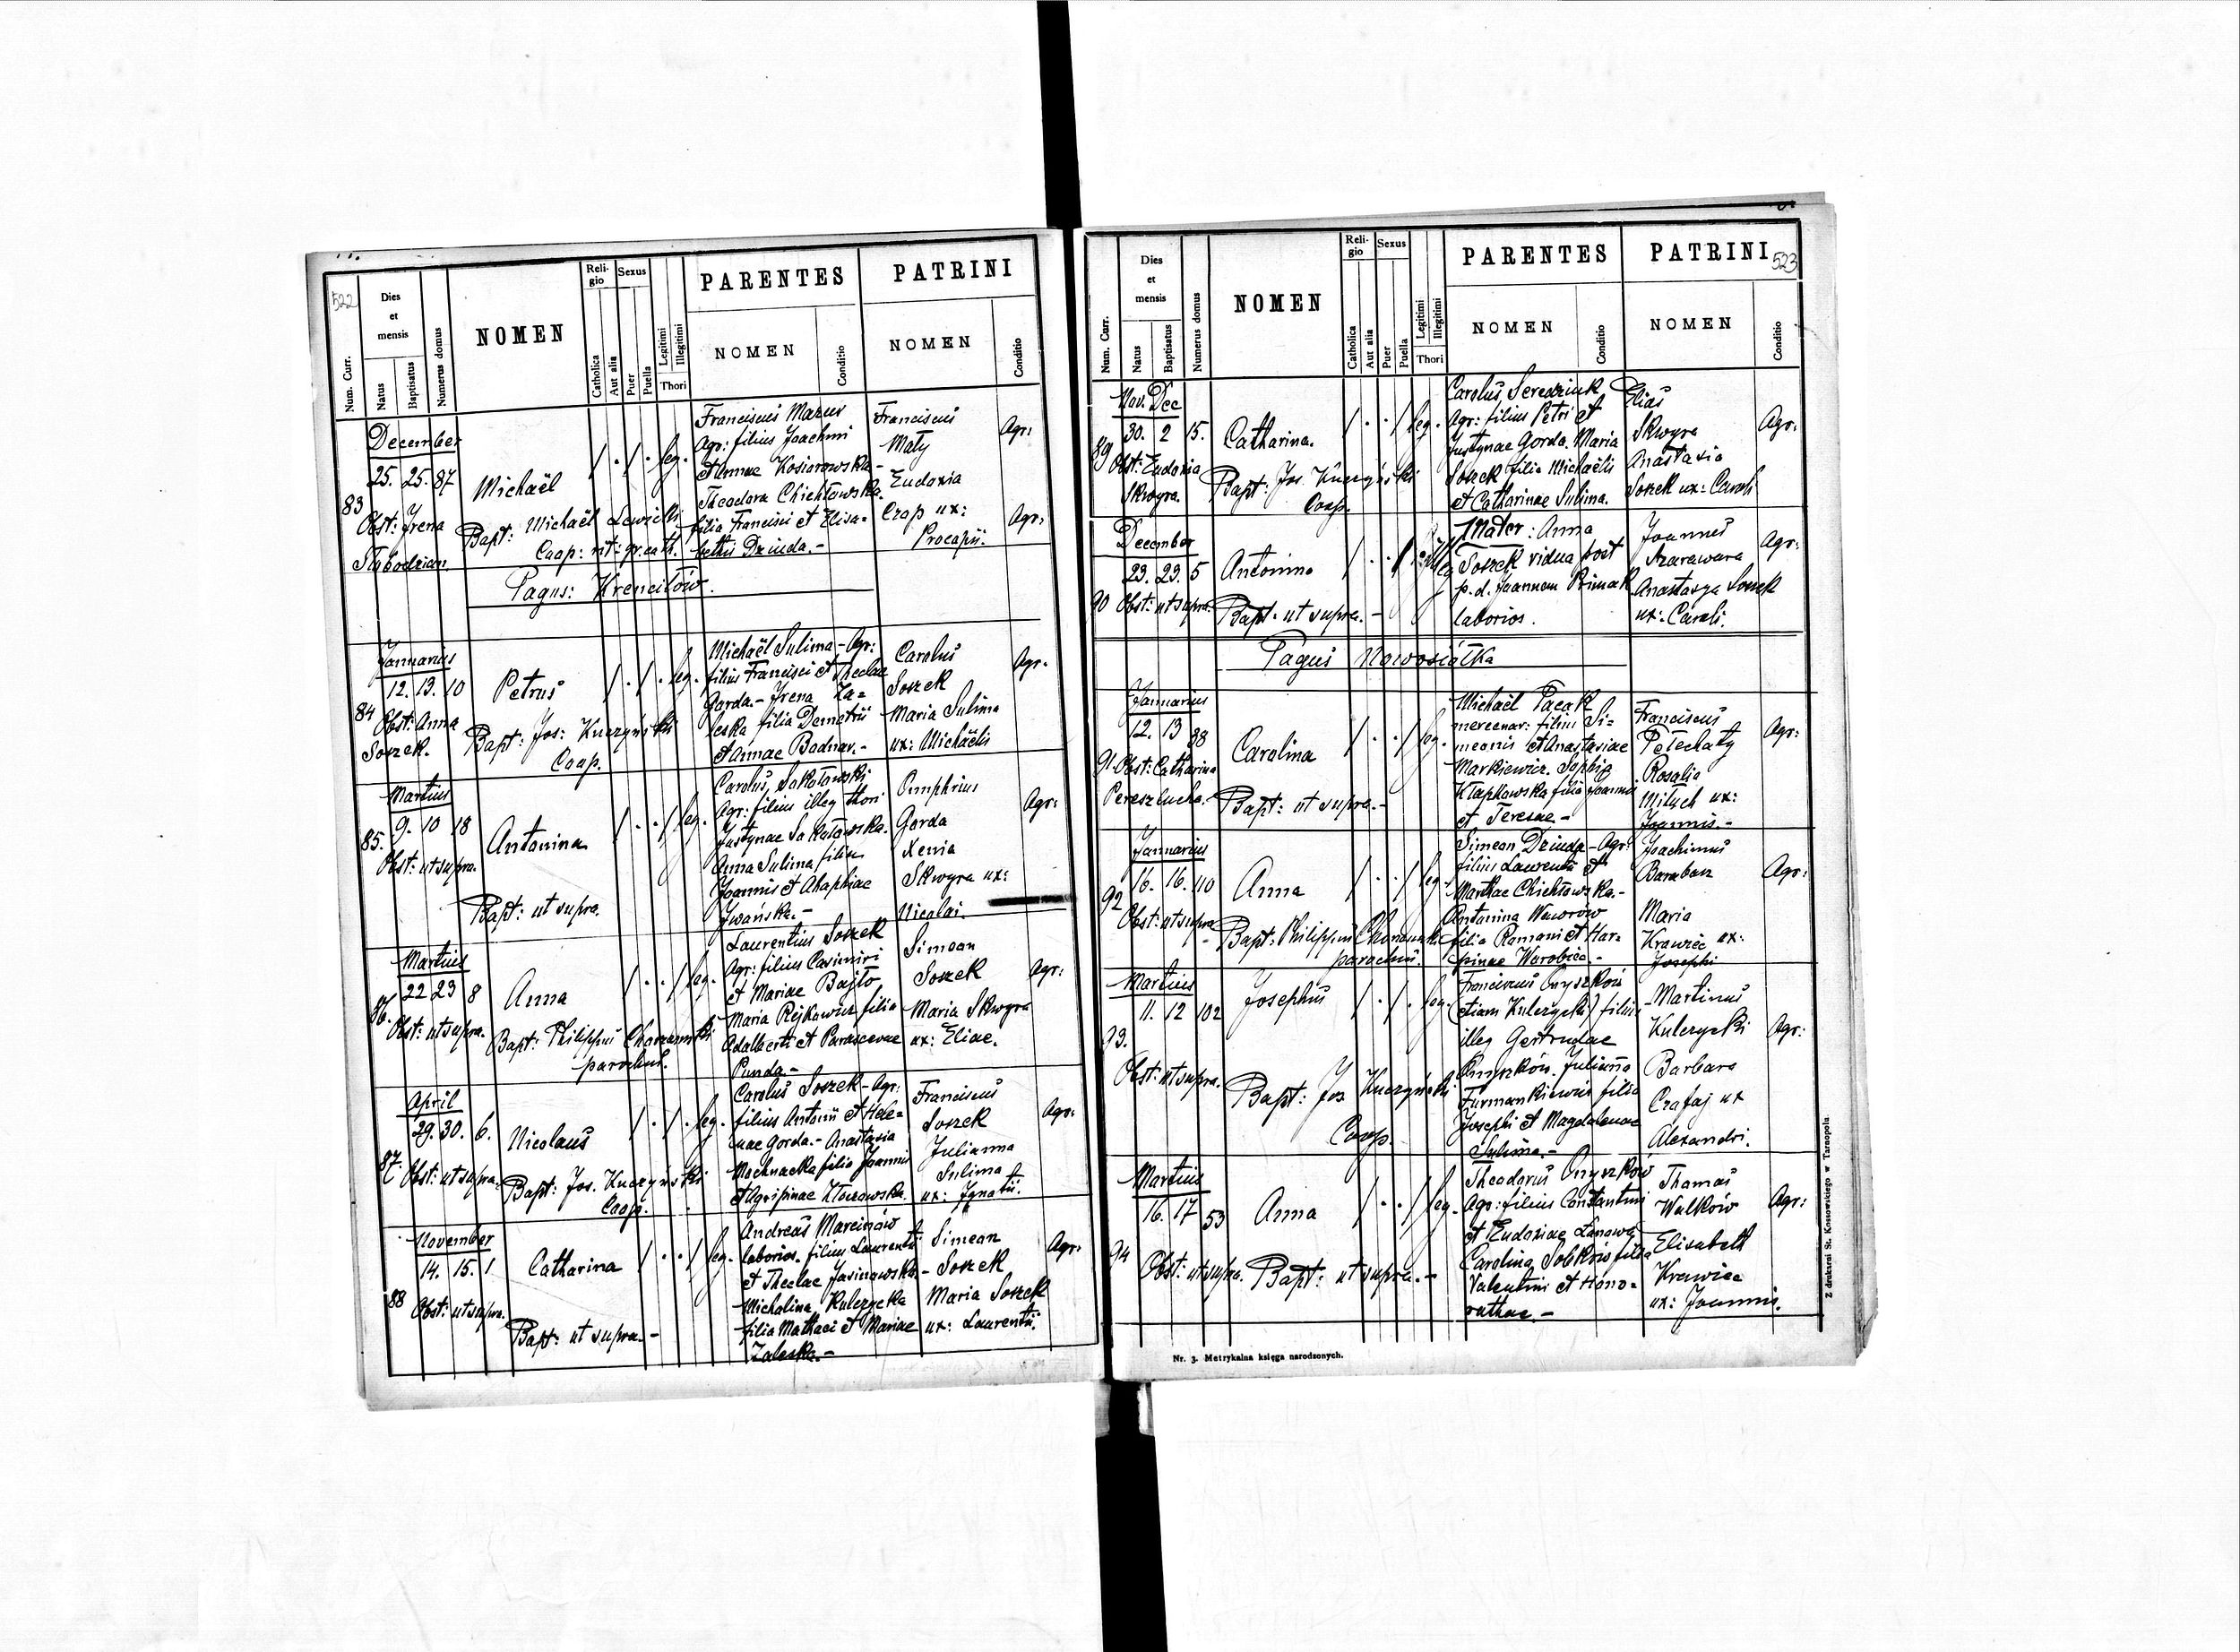 522
Num. Curr.
Dies et mensis
Natus
Baptisatus
Numerus domus
NOMEN
Religio
Catholica
Aut alia
Sexus
Puer
Puella
Legitimi
Illegitimi
Thori
PARENTES
NOMEN
Conditio
PATRINI
NOMEN
Conditio
December
83 25. 25. 87
Michaël
leg.
Obst: Irena
Słabodzian.
Bapt: Michaël Lewicki
Coop: rit: gr. cath.
Franciscus Mazur
Agr: filius Joachimi
et Annae Kosiorowska-
Theodora Chichłowska
filia Francisci et Elisa=
bethis Dziuda.-
Franciscus
Mały
Eudoxia
Czop ux:
Procopii.
Agr:
Agr:
Pagus: Krenciłów.
Januarius
84 12. 13. 10
Petrus
leg.
Obst: Anna
Soszek.
Bapt: Jos: Kuczyński
Coop.
Michaël Sulima - Agr:
filius Francisci et Theclae
Gorda.- Irena Za=
leska filia Demetrii
et Annae Bodnar.-
Carolus
Soszek
Maria Sulima
ux: Michaëlis
Agr.
Martius
85. 9. 10 18
Antonina
leg.
Obst: ut supra.
Bapt: ut supra.
Carolus Sokołowski
Agr: filius illeg thori
Justynae Sokołowska.
Anna Sulima filia
Joannis et Ahaphiae
Iwańska.-
Onuphrius
Gorda
Xenia
Skwyra ux:
Nicolai.
Agr:
Martius
86. 22 23 8
Anna
leg.
Obst: ut supra.
Bapt: Philippus
parochus.
Laurentius Soszek
Agr: filius Casimiri
et Mariae Bajło
Maria Rejkowicz filia
Adalberti et Parascevae
Punda-
Simeon
Soszek
Maria Skwyra
ux: Eliae.
Agr:
April
87. 29. 30. 6.
Nicolaus
leg.
Obst: ut supra.
Bapt: Jos. Kuczyński
Coop.
Carolus Soszek - Agr:
filius Antonii et Hele=
nae Gorda.- Anastasia
Mochnacka filia Joannis
et Agripinae
Franciscus
Soszek
Julianna
Sulima
ux: Ignatii.
Agr:
November
88 14. 15. 1.
Catharina
leg.
Obst: ut supra.
Bapt: ut supra-
Andreas Marcinów
laborios. filius Laurentii
et Theclae Jasinowska-
Michalina Kulczycka
filia Mathaei et Mariae
Zaleska.-
Simeon
Soszek
Maria Soszek
ux: Laurentii.
Agr:
523
Num. Curr.
Dies et mensis
Natus
Baptisatus
Numerus domus
NOMEN
Religio
Catholica
Aut alia
Sexus
Puer
Puella
Legitimi
Illegitimi
Thori
PARENTES
NOMEN
Conditio
PATRINI
NOMEN
Conditio
Nov. Dec
89 30. 2 15.
Catharina.
leg.
Obst: Eudoxia
Skwyra.
Bapt: Jos. Kuczyński
Coop.
Carolus Seredziuk
Agr: filius Petri et
Justynae Gorda. Maria
Soszek filia Michaëlis
et Catharinae Sulima.
Elias
Skwyra
Anastasia
Soszek ux: Caroli
Agr.
December
90 23. 23. 5
Antonina
Obst: ut supra.
Bapt. ut supra.-
Mater: Anna
Soszek vidua post
p. d. Joannem Primak
laborios.
Joannes
Szarawara
Anastasya Soszek
ux: Caroli.
Agr:
Pagus Nowosiółka
Januarius
91. 12. 13 38
Carolina
leg.
Obst: Catharina
Pereszlucha.
Bapt: ut supra.-
Michaël Pacak
mercenar: filius Si=
meonis et Anastasiae
Markiewicz. Sophia
Kłapkowska filia Joannis
et Teresae-
Franciscus
Petechaty
Rosalia
Milych ux:
Joannis.-
Agr:
Januarius
92 16. 16. 110
Anna
leg.
Obst: ut supra
Bapt: Philippus
parochus.
Simeon Dziuda - Agr:
filius Laurentii et
Marthae Chichłowska.-
Antonina Waworów
filia Romani et Har=
pinae Worobiec.-
Joachimus
Baraban
Maria
Krawiec ux:
Josephi
Agr:
Martius
93. 11. 12 102
Josephus
leg.
Obst: ut supra.
Bapt: Jos Kuczyński
Coop.
Franciscus Onyszków
(etiam Kulczycki) filius
illeg Gertrudae
Onyszków. Julianna
Furmankiewicz filia
Josephi et Magdalenae
Sulima.-
Martinus
Kulczycki
Barbara
Czafaj ux
Alexandri.
Agr:
Martius
94 16. 17 53
Anna
leg.
Obst: ut supra.
Bapt: ut supra.-
Theodorus Onyszków
Agr: filius Constantini
et Eudoxiae
Carolina Sobków filia
Valentini et Hono=
rathae.-
Thomas
Walków
Elisabeth
Krawiec
ux: Joannis.
Agr:
Nr. 3. Metrykalna księga narodzonych.
Z drukarni St. Kossowskiego w Tarnopolu